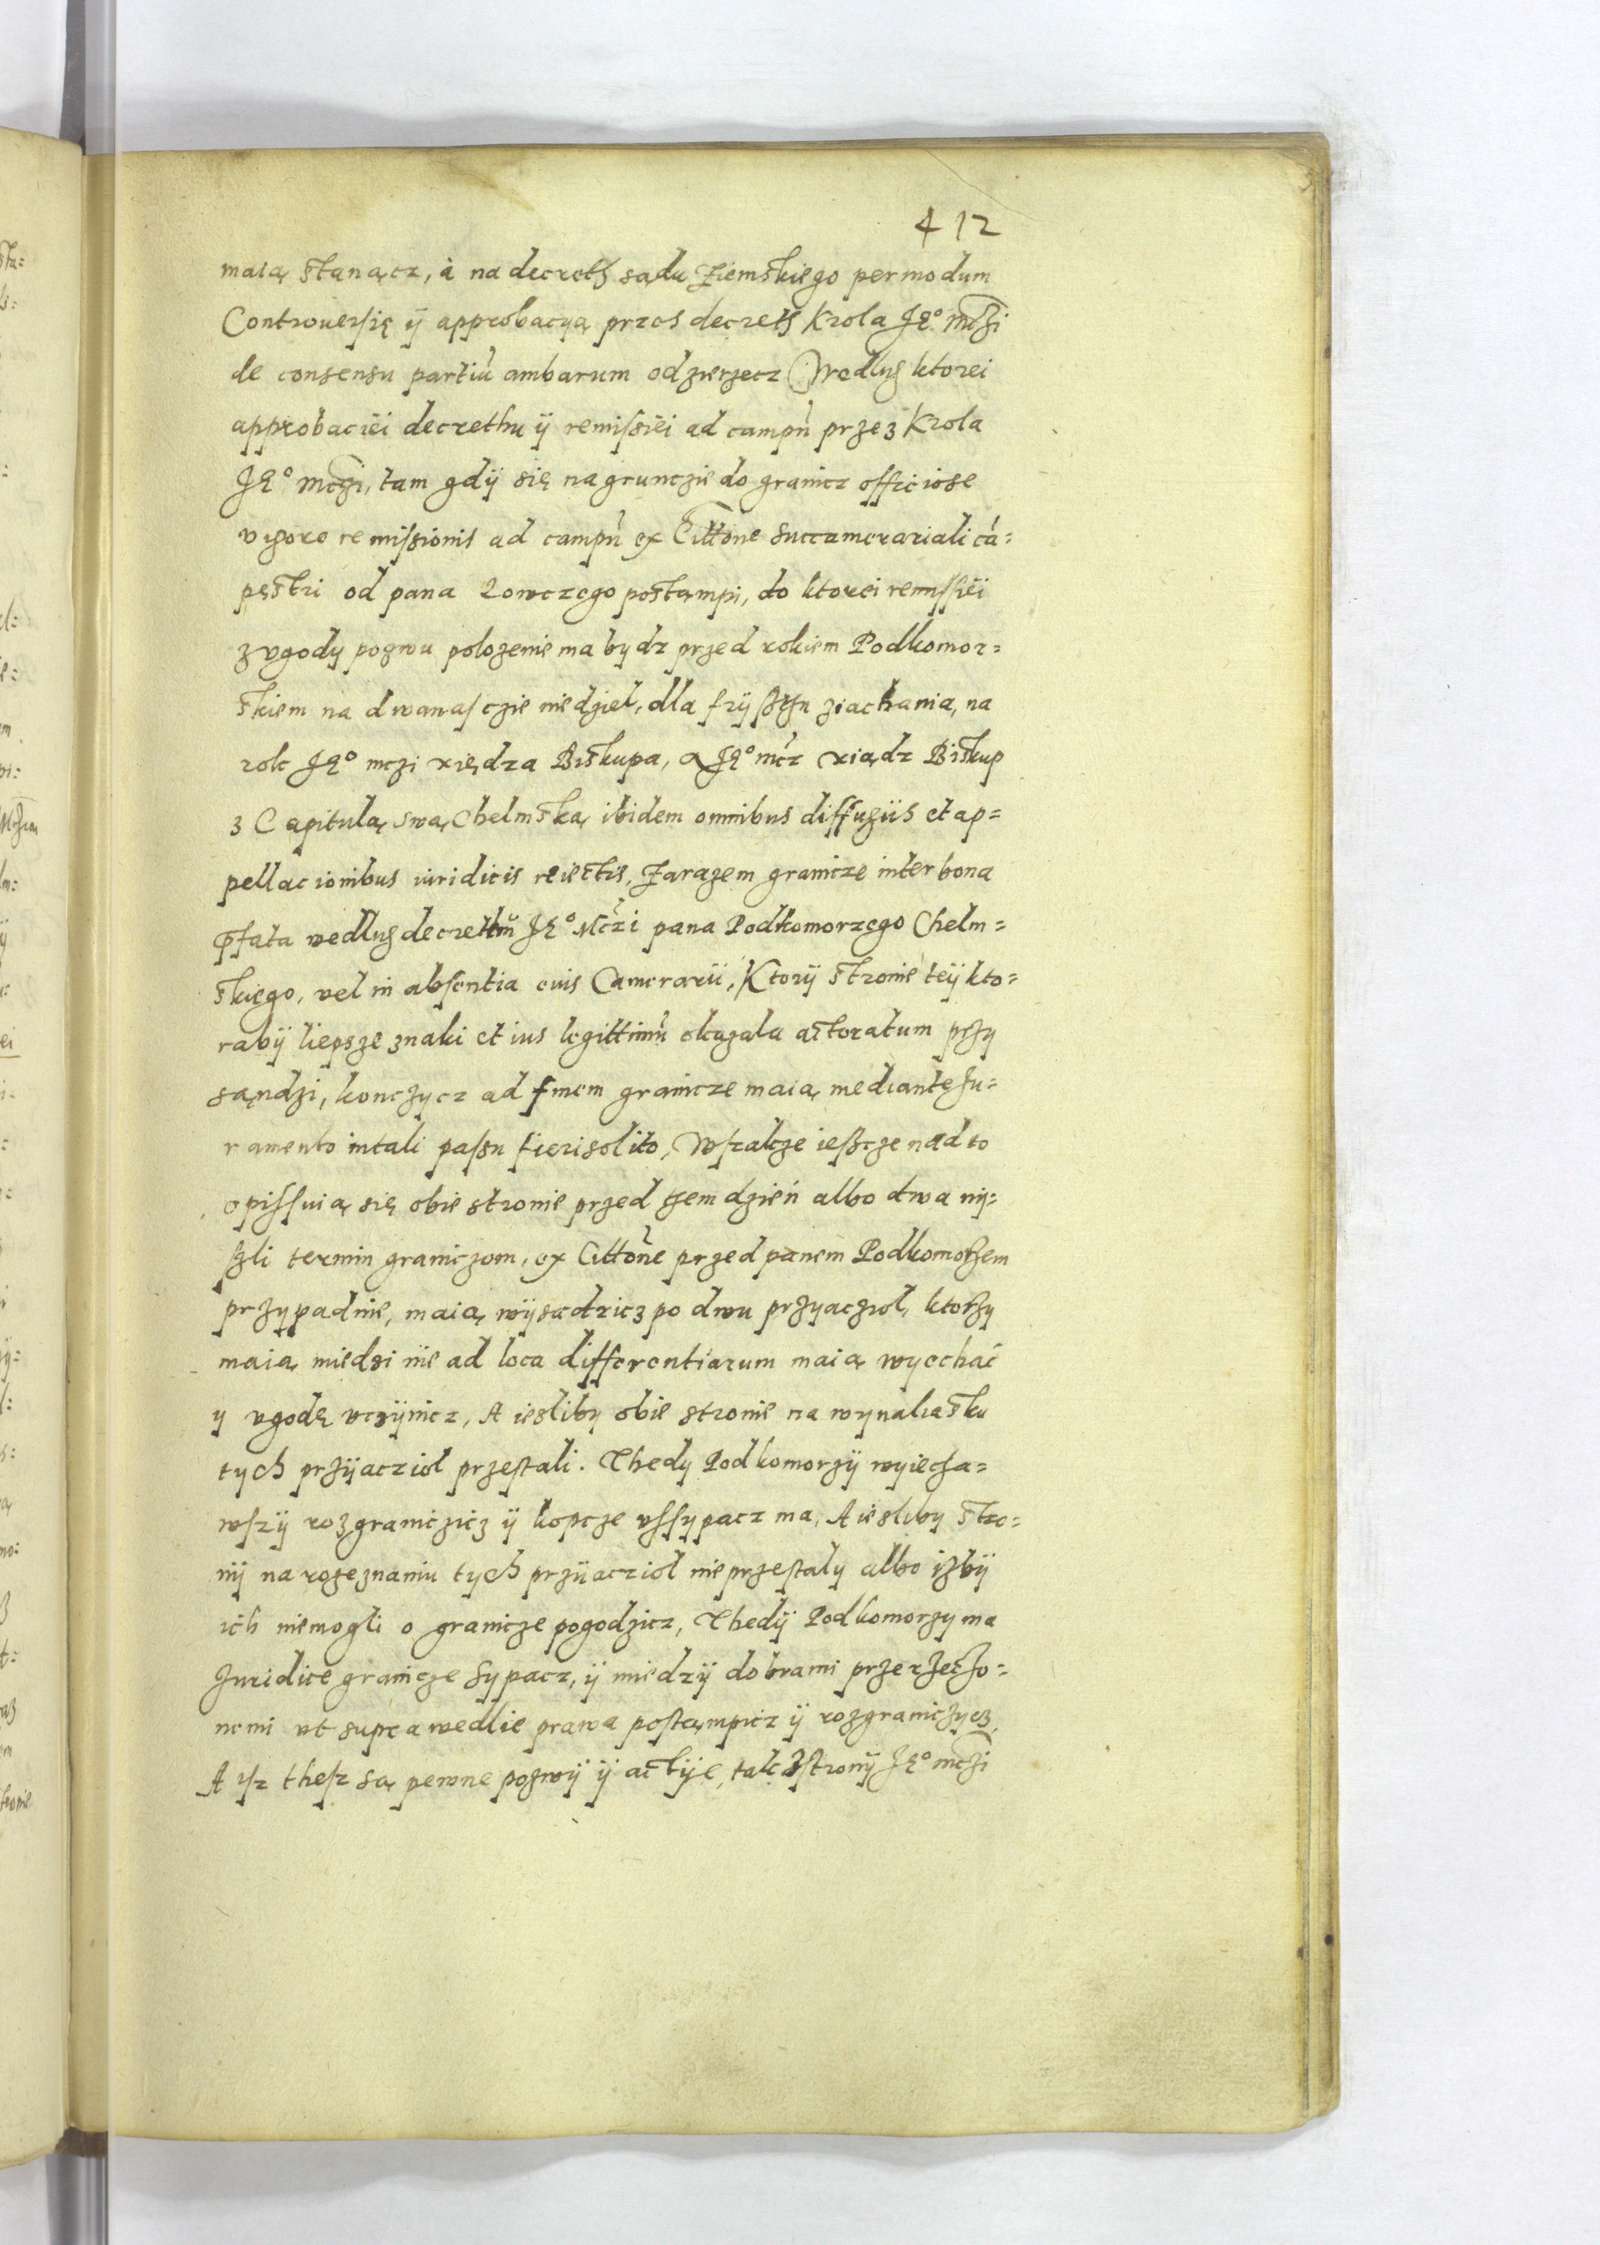 412
maią stanącz, á na decreth sądu Ziemskiego per modum
Controuersię ÿ approbacyą przes decreth Krola Jęº mczi
de consensu partiu ambarum odzierzecz Wedlug ktorei
approbaciei decrethu ÿ remissiei ad campu przez Krola
Jęº mczi, tam gdÿ się na grunczie do granicz officiose
vigore remissionis ad campu ex Cittone succamerariali cá=
pęstri od pana Lowczego postampi, do ktorei remissiei
z vgody pozwu polozenie ma bydz przed rokiem Podkomor=
skiem na dwanasczie niedziel, dla friÿsztu ziachania, na
rok Jęº mczi xiędza Biskupa, A Jęº mcz xiądz Biskup
z Capitulą swą Chelmską ibidem omnibus diffugiis et ap=
pellacionibus iuridicis reiectis, Zarazem granicze inter bona
pfata wedlug decrethu Jęº Mczi pana Podkomorzego Chelm=
skiego, vel in absentia euis Camerarii, Ktorÿ stronie teÿ kto=
rabÿ liepsze znaki et ius legittimu okazala actoratum przy
sąndzi, konczycz ad finem granicze maią mediante Ju=
ramento in tali passu fieri solito, Wszakze iescze nad to
opissuią się obie stronie przed tzem dzień albo dwa nÿ=
szli termin graniczom, ex Cittone przed panem Podkomorzem
przypadnie, maią wÿsadzicz po dwu przyaczioł, ktorzy
maią miedzi nie ad loca differentiarum maią wyechać
y vgodę vczÿnicz, A iesliby obie stronie na wynaliasku
tych przÿacziol przestali. Thedy Podkomorzÿ wyiecha=
wszÿ rozgraniczicz ÿ kopcze vssypacz ma, A iesliby stro=
nÿ na rozeznaniu tych przÿacziol nie przestaly albo izbÿ
ich niemogli o granicze pogodzicz, Thedÿ Podkomorzy ma
Juridice granicze sypacz, ÿ miedzÿ dobrami przerzeczo=
nemi vt supra wedlie prawa postąmpicz ÿ rozgraniczycz,
A isz thesz są pewne pozwÿ ÿ actÿe, tak z stronÿ Jęº mczi